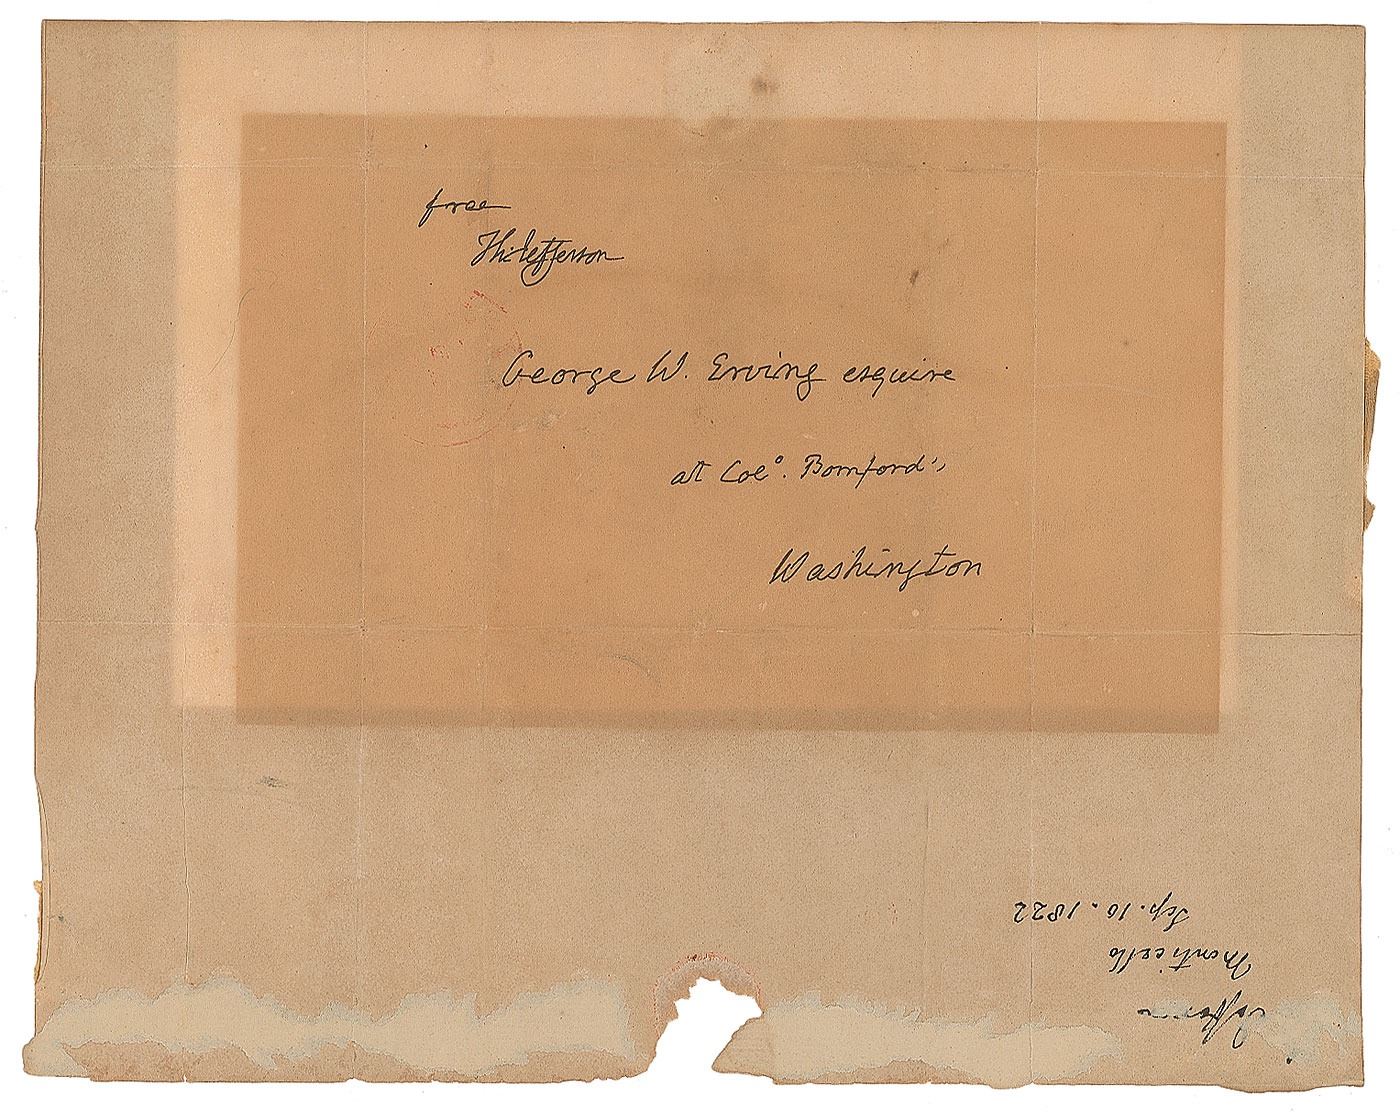 free
Th: Jefferson
George W. Erving esquire
at Colo. Bomford's
Washington
Jefferson
Monticello
Sep. 10. 1822